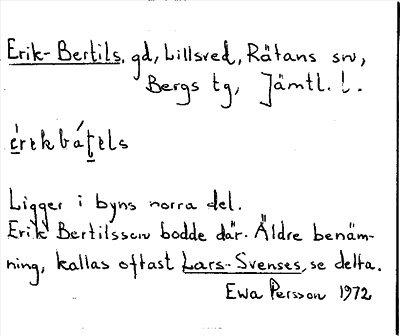 Erik-Bertils, gd, Lillsved, Rätans sn,
Bergs tg, Jämtl. l.
érekbá́tels
Ligger i byns norra del.
Erik Bertilsson bodde där. Äldre benäm-
ning, kallas oftast Lars-Svenses, se detta.
Ewa Persson 1972